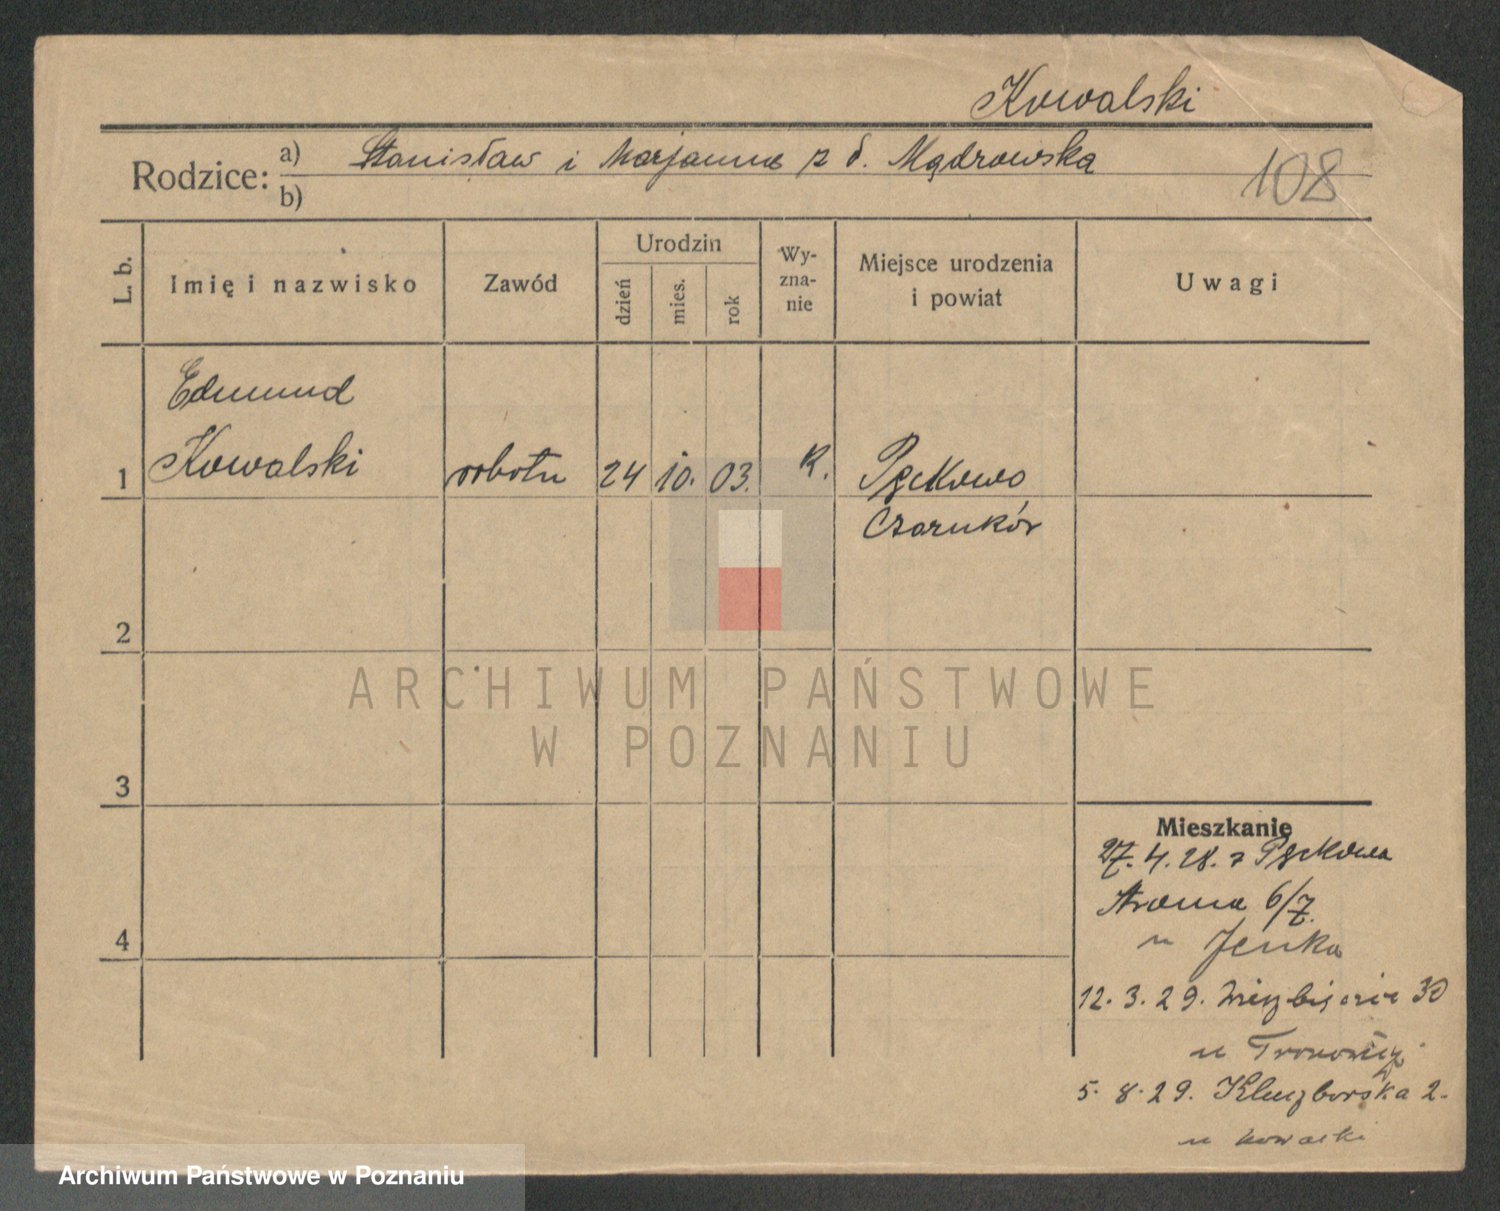 Kowalski
Rodzice: a) Stanisław i Marjanna z d. Mądrowska
b)
108
L. b.
Imię i nazwisko
Zawód
Urodzin
dzień
mies.
rok
Wy-
zna-
nie
Miejsce urodzenia
i powiat
Uwagi
Edmund
1 Kowalski robotn 24 10. 03. R. Pęckowo
Czarnków
2
3
4
Mieszkanie
27.4.28. z Pęckowa
6/7.
u Jenka
12. 3. 29. 30
u
5. 8. 29. Kluczborska 2.
u
ARCHIWUM PAŃSTWOWE
W POZNANIU
Archiwum Państwowe w Poznaniu